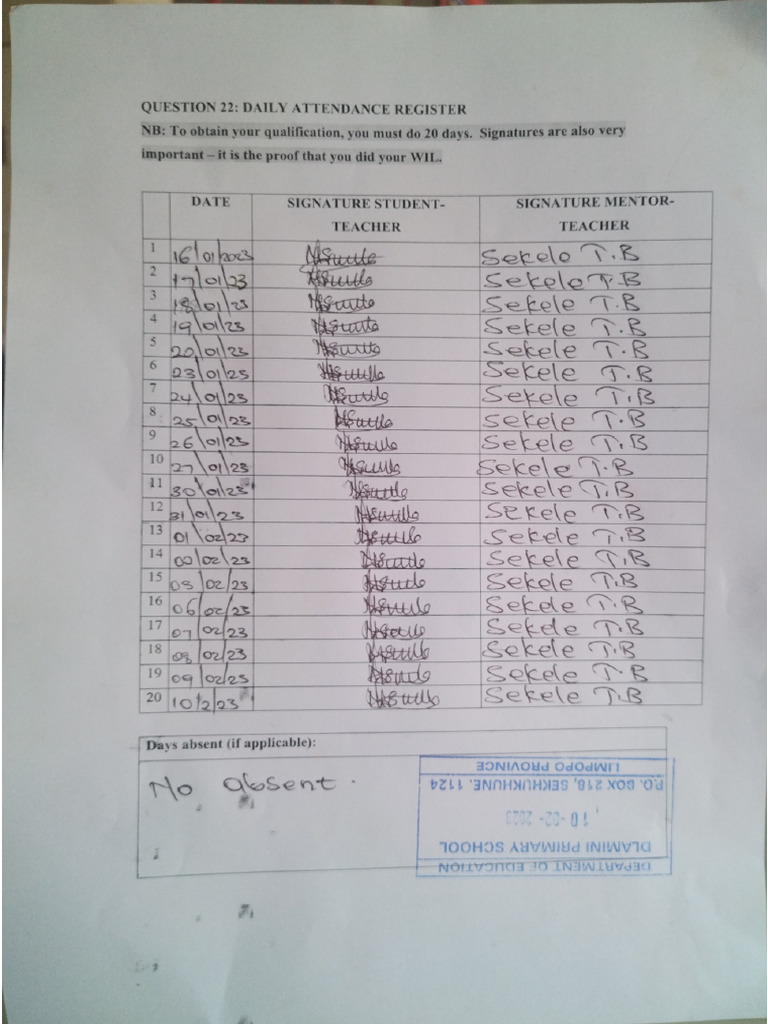 QUESTION 22: DAILY ATTENDANCE REGISTER
NB: To obtain your qualification, you must do 20 days. Signatures are also very
important – it is the proof that you did your WIL.
DATE SIGNATURE STUDENT-TEACHER SIGNATURE MENTOR-TEACHER
1 16/01/2023 Sekelo T.B
2 17/01/23 Sekele T.B
3 18/01/23 Sekele T.B
4 19/01/23 Sekele T.B
5 20/01/23 Sekele T.B
6 23/01/23 Sekele T.B
7 24/01/23 Sekele T.B
8 25/01/23 Sekele T.B
9 26/01/23 Sekele T.B
10 27/01/23 Sekele T.B
11 30/01/23 Sekele T.B
12 31/01/23 Sekele T.B
13 01/02/23 Sekele T.B
14 /02/23 Sekele T.B
15 03/02/23 Sekele T.B
16 06/02/23 Sekele T.B
17 07/02/23 Sekele T.B
18 08/02/23 Sekele T.B
19 09/02/23 Sekele T.B
20 10/2/23 Sekele T.B
Days absent (if applicable):
No absent.
DEPARTMENT OF EDUCATION
DLAMINI PRIMARY SCHOOL
10 -02- 2023
P.O. BOX 216, SEKHUKHUNE. 1124
LIMPOPO PROVINCE